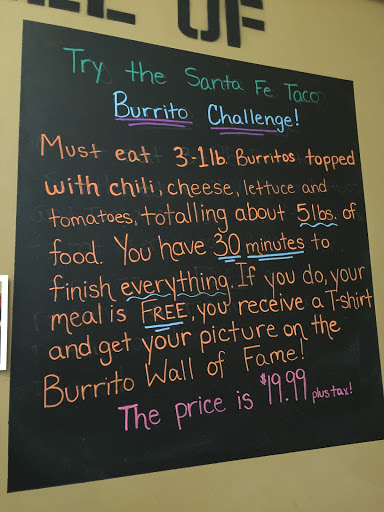 OF
Try the Santa Fe Taco
Burrito Challenge!
Must eat 3-1lb. Burritos topped
with chili, cheese, lettuce and
tomatoes, totalling about 5lbs. of
food. You have 30 minutes to
finish everything. If you do, your
meal is FREE, you receive a T-shirt
and get your picture on the
Burrito Wall of Fame!
The price is $19.99 plus tax!